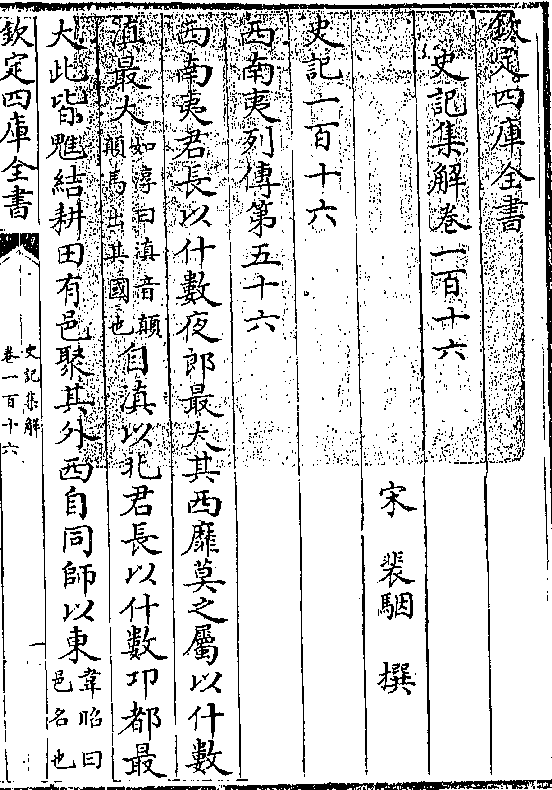 欽定四庫全書
史記集解卷一百十六
宋 裴駰 撰
史記一百十六
西南夷列傳第五十六
西南夷君長以什數夜郎最大其西靡莫之屬以什數
滇最大如淳曰滇音顛顛馬出其國也自滇以北君長以什數邛都最
大此皆魋結耕田有邑聚其外西自同師以東韋昭曰邑名也
欽定四庫全書
史記集解
卷一百十六
一